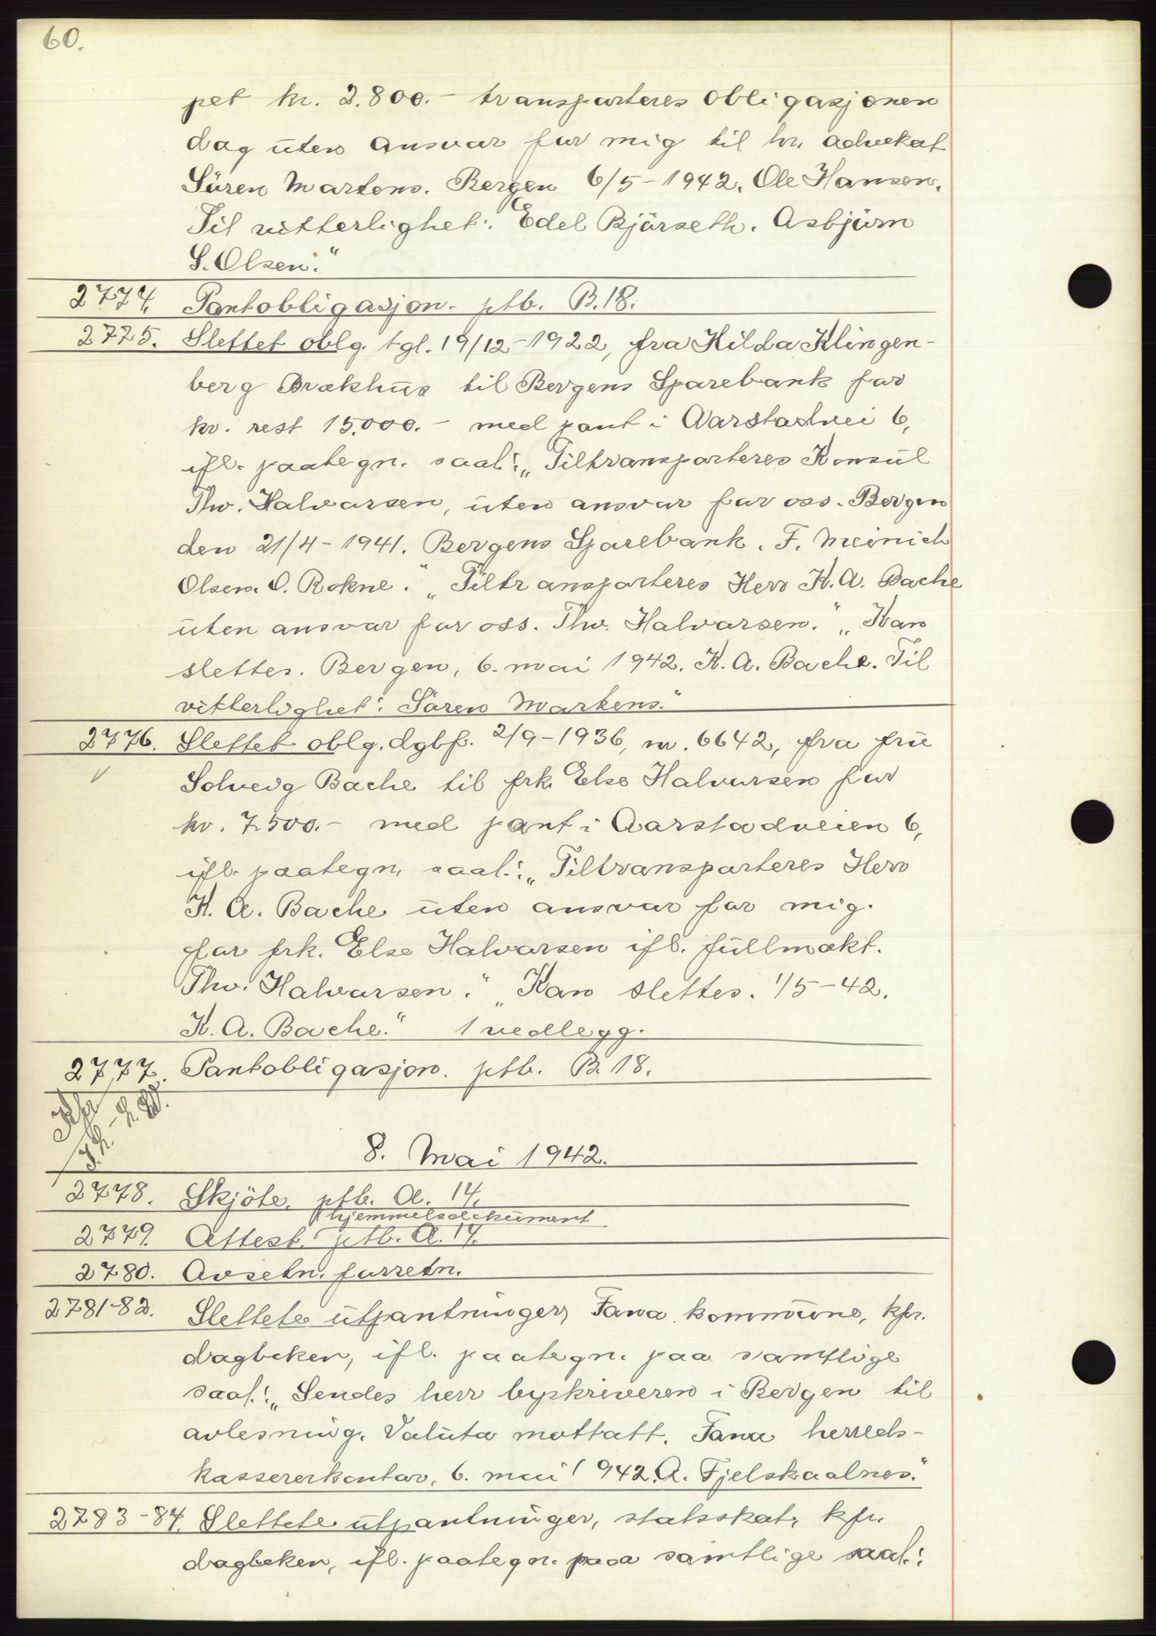 60.
pet kr. 2.800.- transporteres obligasjonen
dag uten ansvar for mig til hr. advokat
Sören Martens. Bergen 6/5-1942. Ole Hansen.
Til vitterlighet: Edel Bjärseth. Asbjörn
S. Olsen."
2774. Pantobligasjon. ptb. B.18.
2775. Slettet oblg. tgl. 19/12-1922, fra Hilda Klingen-
berg Brækhus til Bergens Sparebank for
kr. rest 15.000.- med pant i Aarstadvei 6,
ifl. paategn. saal.: „Tiltransporteres Konsul
Thv. Halvorsen, uten ansvar for oss. Bergen
den 21/4-1941. Bergens Sparebank. F. Meinich
Olsen. O. Rokne." „Tiltransporteres Herr K.A. Bache
uten ansvar for oss. Thv. Halvorsen." „Kan
slettes. Bergen, 6. mai 1942. K.A. Bache. Til
vitterlighet: Sören Martens."
2776. Slettet oblg. dgbf. 2/9-1936, nr. 6642, fra frue
Solveig Bache til frk. Else Halvorsen for
kr. 7.500.- med pant i Aarstadveien 6,
ifl. paategn. saal.: „Tiltransporteres Herr
K.A. Bache uten ansvar for mig.
for frk. Else Halvorsen ifl. fullmakt.
Thv. Halvorsen." „Kan slettes. 1/5-42.
K.A. Bache." 1 vedlegg.
2777. Pantobligasjon. ptb. B.18.
8. Mai 1942.
2778. Skjöte. ptb. A. 14.
hjemmelsdokument
2779. Attest. ptb. A. 14.
2780. Avsetn. forretn.
2781-82. Slettete utpantninger, Fana kommune, kfr.
dagboken, ifl. paategn. paa samtlige
saal.: „Sendes herr byskriveren i Bergen til
avlesning. Valuta mottatt. Fana herreds-
kassererkontor, 6. mai 1942. A. Fjelskaalnes."
2783-84. Slettete utpantninger, statsskat, kfr.
dagboken, ifl. paategn. paa samtlige saal.: